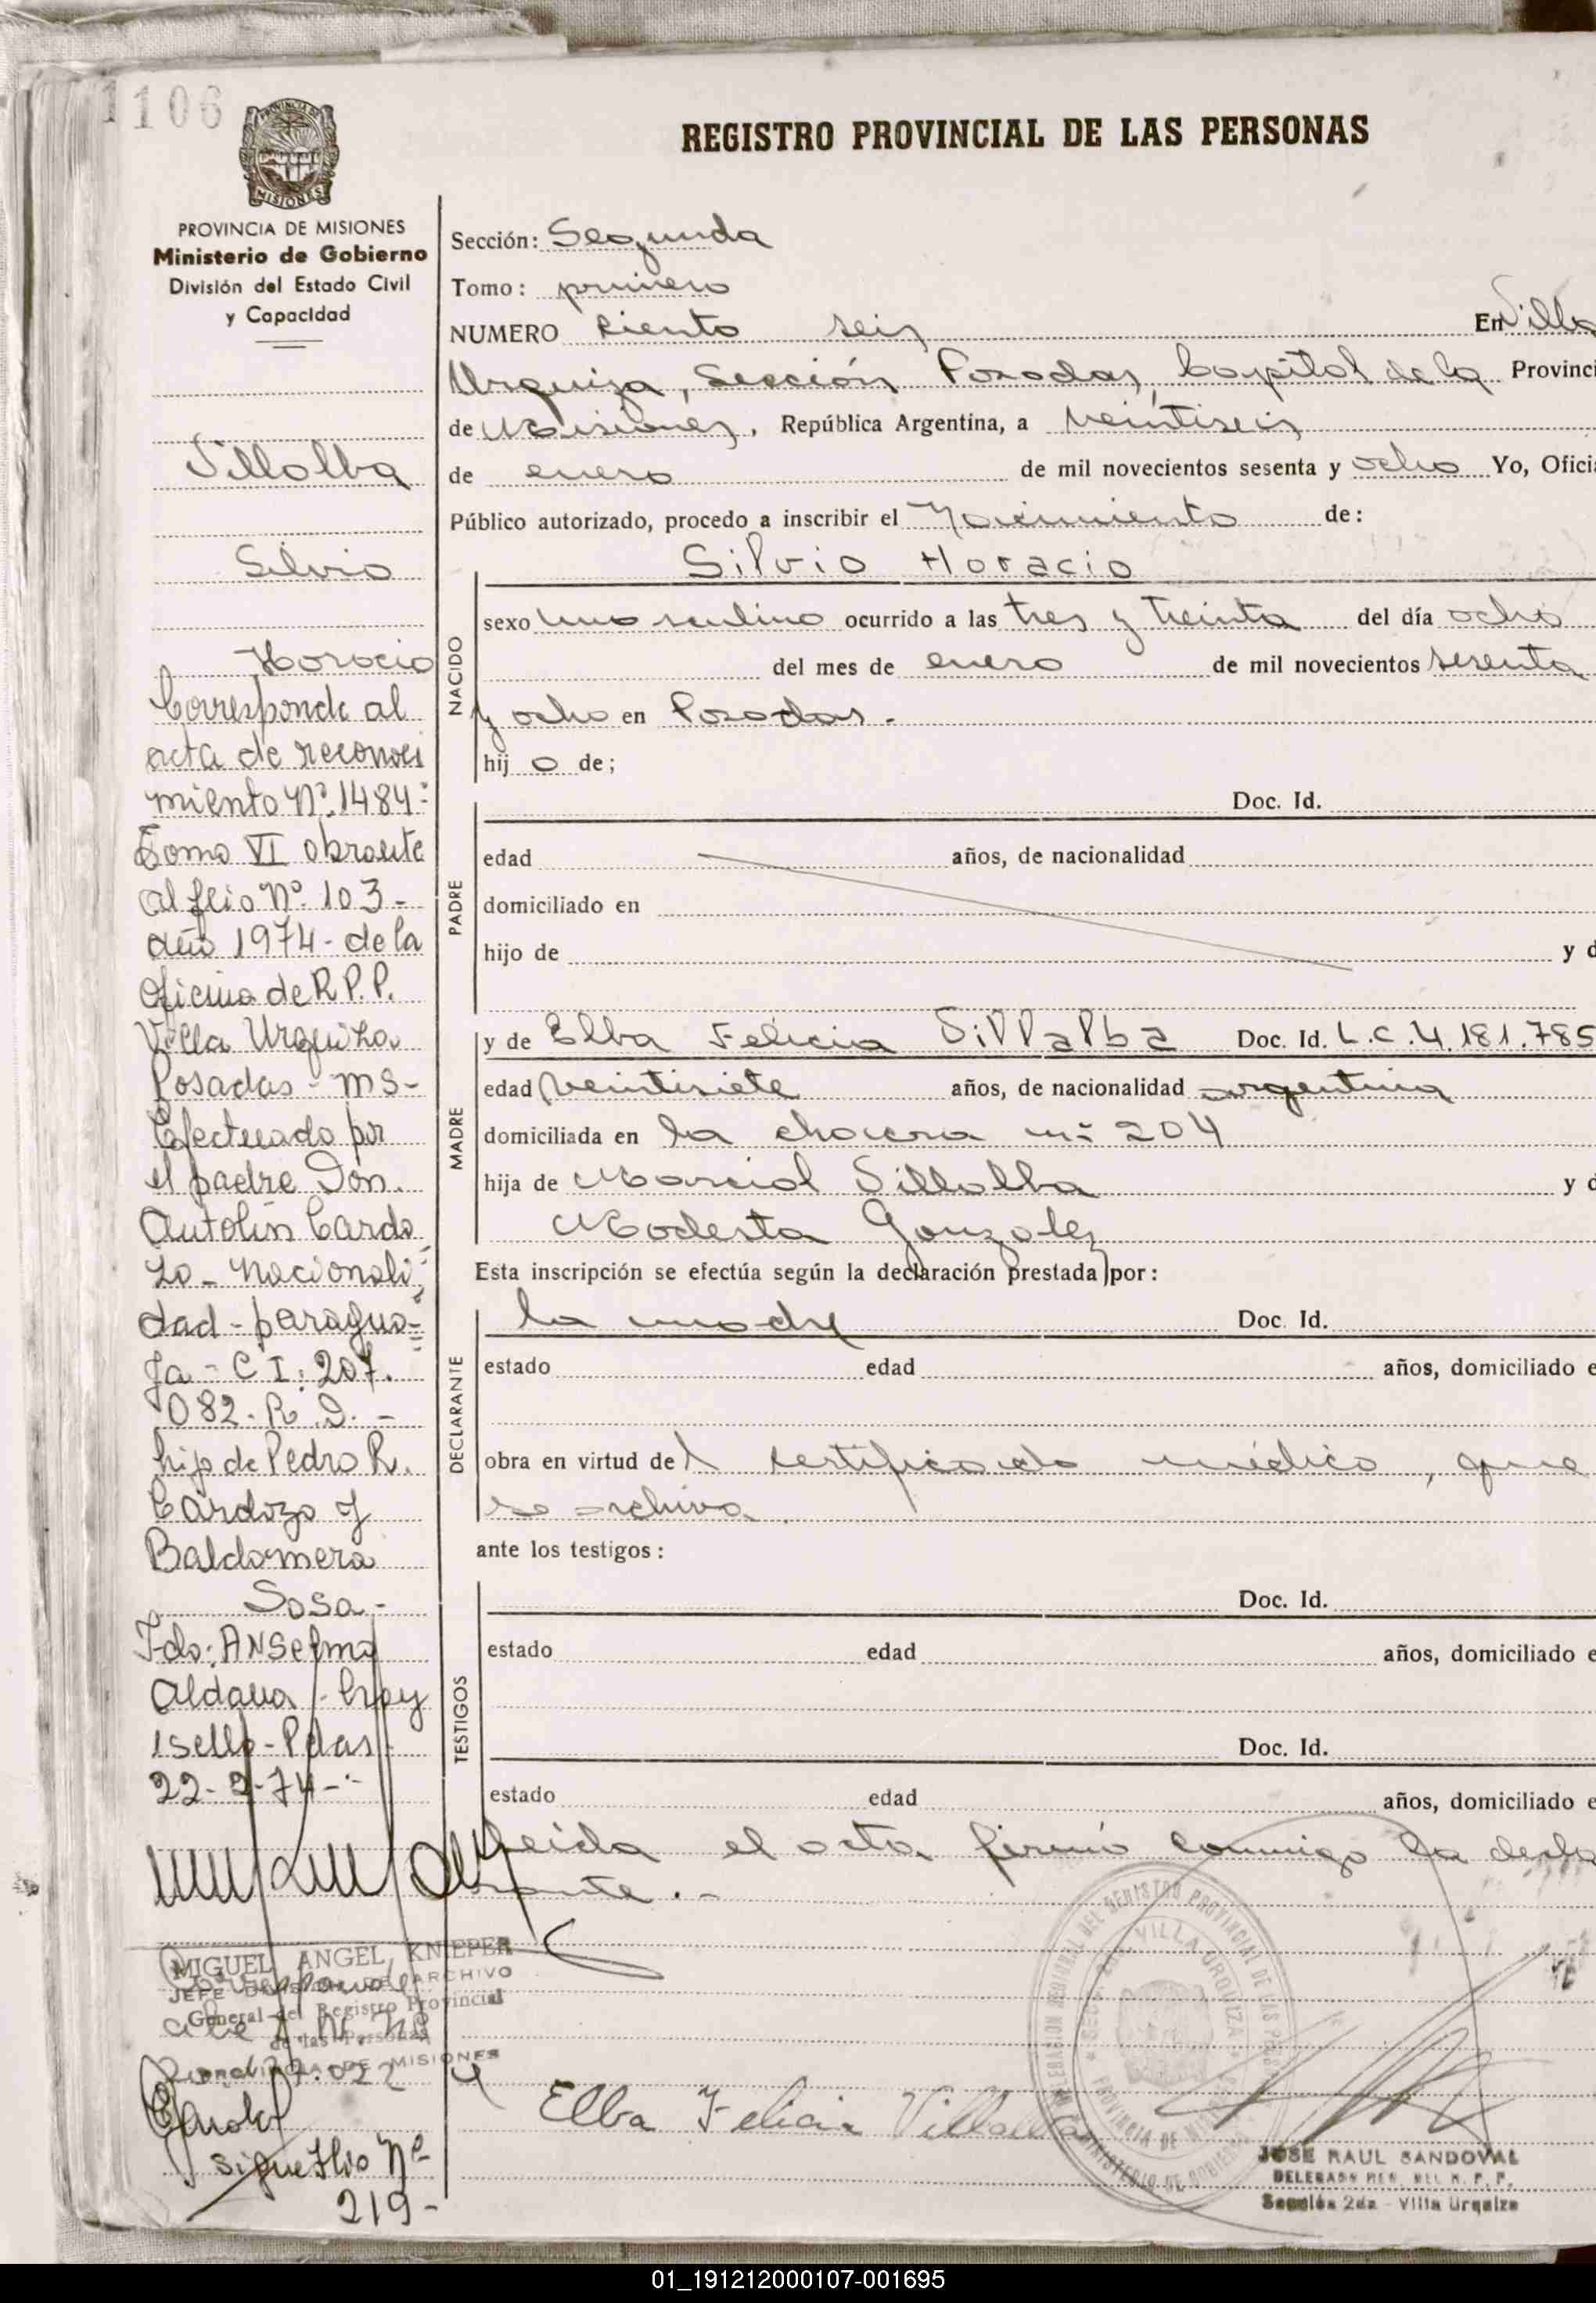 1106
PROVINCIA DE MISIONES
Ministerio de Gobierno
División del Estado Civil
y Capacidad
Villalba
Silvio
Horacio
Corresponde al
acta de reconoci
miento Nº 1484-
Tomo VI obrante
al flio Nº 103-
año 1974- de la
Oficina de R.P.P.
Villa Urquiza
Posadas - Ms-
Efectuado por
el padre Don.
Autolin Cardo
zo - Nacionali
dad - paragua-
ya - C I: 207.
082. R. D. -
hijo de Pedro R.
Cardozo y
Baldomera
Sosa -
Fdo: Anselmo
Aldana - hay
1 sello - Pdas -
22-2-74-
MIGUEL ANGEL KNIEPER
JEFE DIVISION DE ARCHIVO
General del Registro Provincial
de las Personas
PROVINCIA DE MISIONES
sigue flio Nº
219-
REGISTRO PROVINCIAL DE LAS PERSONAS
Sección: Segunda
Tomo: primero
NUMERO ciento seis En Villa
Urquiza, Sección Posadas, Capital de la Provinci
de Misiones, República Argentina, a veintiseis
de enero de mil novecientos sesenta y ocho Yo, Ofici
Público autorizado, procedo a inscribir el Nacimiento de:
Silvio Horacio
NACIDO
sexo masculino ocurrido a las tres y treinta del día ocho
del mes de enero de mil novecientos sesenta
y ocho en Posadas.
hij o de;
PADRE
Doc. Id.
edad años, de nacionalidad
domiciliado en
hijo de y d
MADRE
y de Elba Felicia Villalba Doc. Id. L.C.4.181.785
edad veintisiete años, de nacionalidad argentina
domiciliada en la chacra nº 204
hija de Marcial Villalba y d
Modesta Gonzalez
Esta inscripción se efectúa según la declaración prestada por:
DECLARANTE
la madre Doc. Id.
estado edad años, domiciliado e
obra en virtud del certificado médico, que
se archiva
ante los testigos:
TESTIGOS
Doc. Id.
estado edad años, domiciliado e
Doc. Id.
estado edad años, domiciliado e
Leída el acta, firmó conmigo la decla
rante.-
Elba Felicia Villalba
JOSE RAUL SANDOVAL
DELEGADO REG. DEL R. P. P.
Sección 2da - Villa Urquiza
01_191212000107-001695